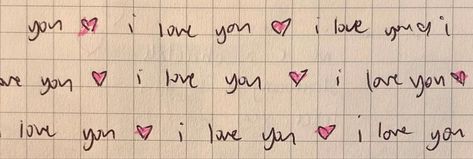 you ♡ i love you ♡ i love you ♡ i
ve you ♡ i love you ♡ i love you ♡
love you ♡ i love you ♡ i love you